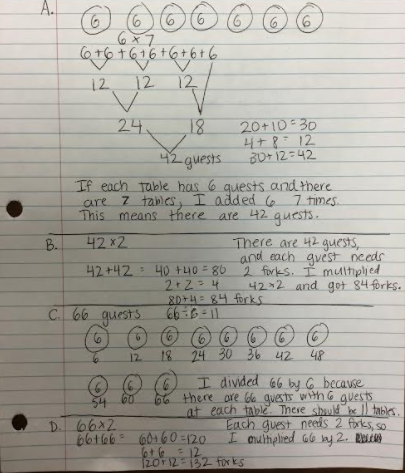 A.
6 6 6 6 6 6 6
6 × 7
6+6+6+6+6+6+6
12 12 12
24 18
42 guests
20+10=30
4+8= 12
30+12=42
If each table has 6 guests and there
are 7 tables, I added 6 7 times.
This means there are 42 guests.
B. 42×2
42+42 = 40+40=80
2+2=4
80+4=84 forks
There are 42 guests,
and each guest needs
2 forks. I multiplied
42×2 and got 84 forks.
C. 66 guests 66÷6=11
6 6 6 6 6 6 6 6
6 12 18 24 30 36 42 48
6 6 6
54 60 66
I divided 66 by 6 because
there are 66 guests with 6 guests
at each table. There should be 11 tables.
D. 66×2
66+66= 60+60=120
6+6 = 12
120+12=132 forks
Each guest needs 2 forks, so
I multiplied 66 by 2.